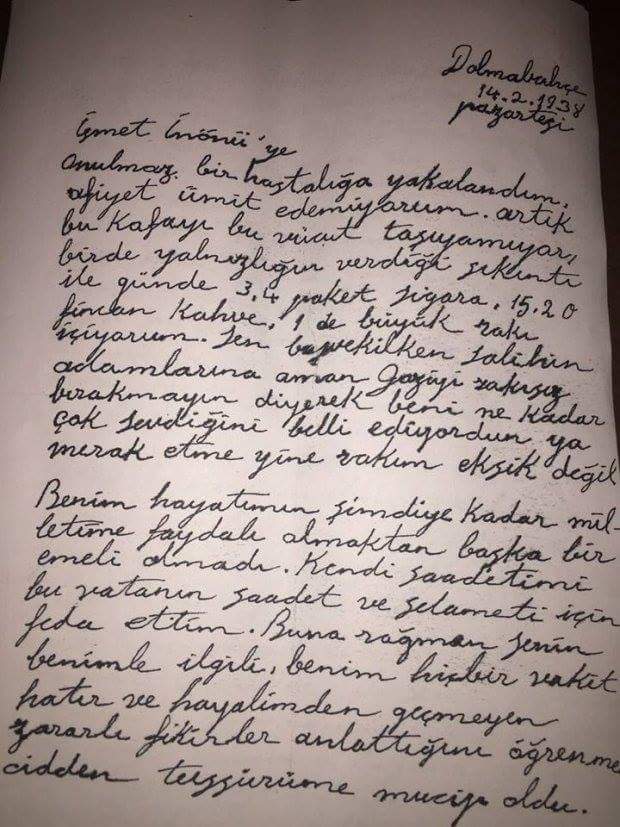 Dolmabahçe
14.2.1938
pazartesi
İsmet İnönü'ye
Onulmaz bir hastalığa yakalandım,
afiyet ümit edemiyorum. artık
bu kafayı bu vücut taşıyamıyor,
birde yalnızlığın verdiği sıkıntı
ile günde 3,4 paket sigara, 15.20
fincan kahve, 1 de büyük rakı
içiyorum. Sen başvekilken Salihin
adamlarına aman Gaziyi rakısız
bırakmayın diyerek beni ne kadar
çok sevdiğini belli ediyordun ya
merak etme yine rakım eksik değil
Benim hayatımın şimdiye kadar mil-
letime faydalı olmaktan başka bir
emeli olmadı. Kendi saadetimi
bu vatanın saadet ve selameti için
feda ettim. Buna rağmen senin
benimle ilgili, benim hiçbir vakit
hatır ve hayalimden geçmeyen
zararlı fikirler anlattığını öğrenme
cidden mucip oldu.